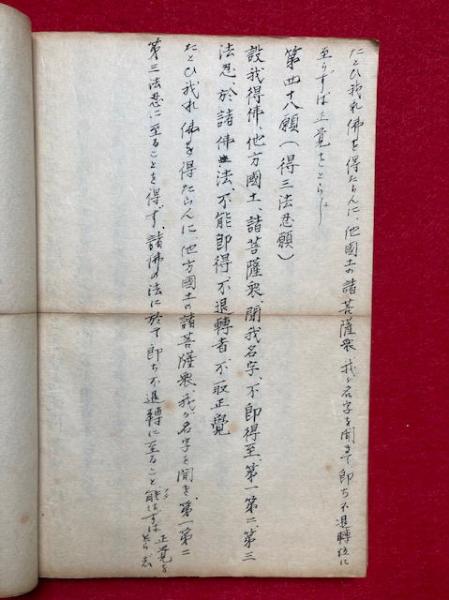 たとひ我れ佛を得たらんに、他國土の諸菩薩衆、我が名字を聞きて即ち不退轉位に
至らずば正覺をとらじ
第四十八願(得三法忍願)
設我得佛、他方國土、諸菩薩衆、聞我名字、不即得至、第一第二、第三
法忍、於諸佛法、不能即得不退轉者不取正覺
たとひ我れ佛を得たらんに他方國土の諸菩薩衆、我が名字を聞き、第一第二
第三法忍に至ることを得ず、諸佛の法に於て即ち不退轉に至ること能はずば正覺を
とらじ